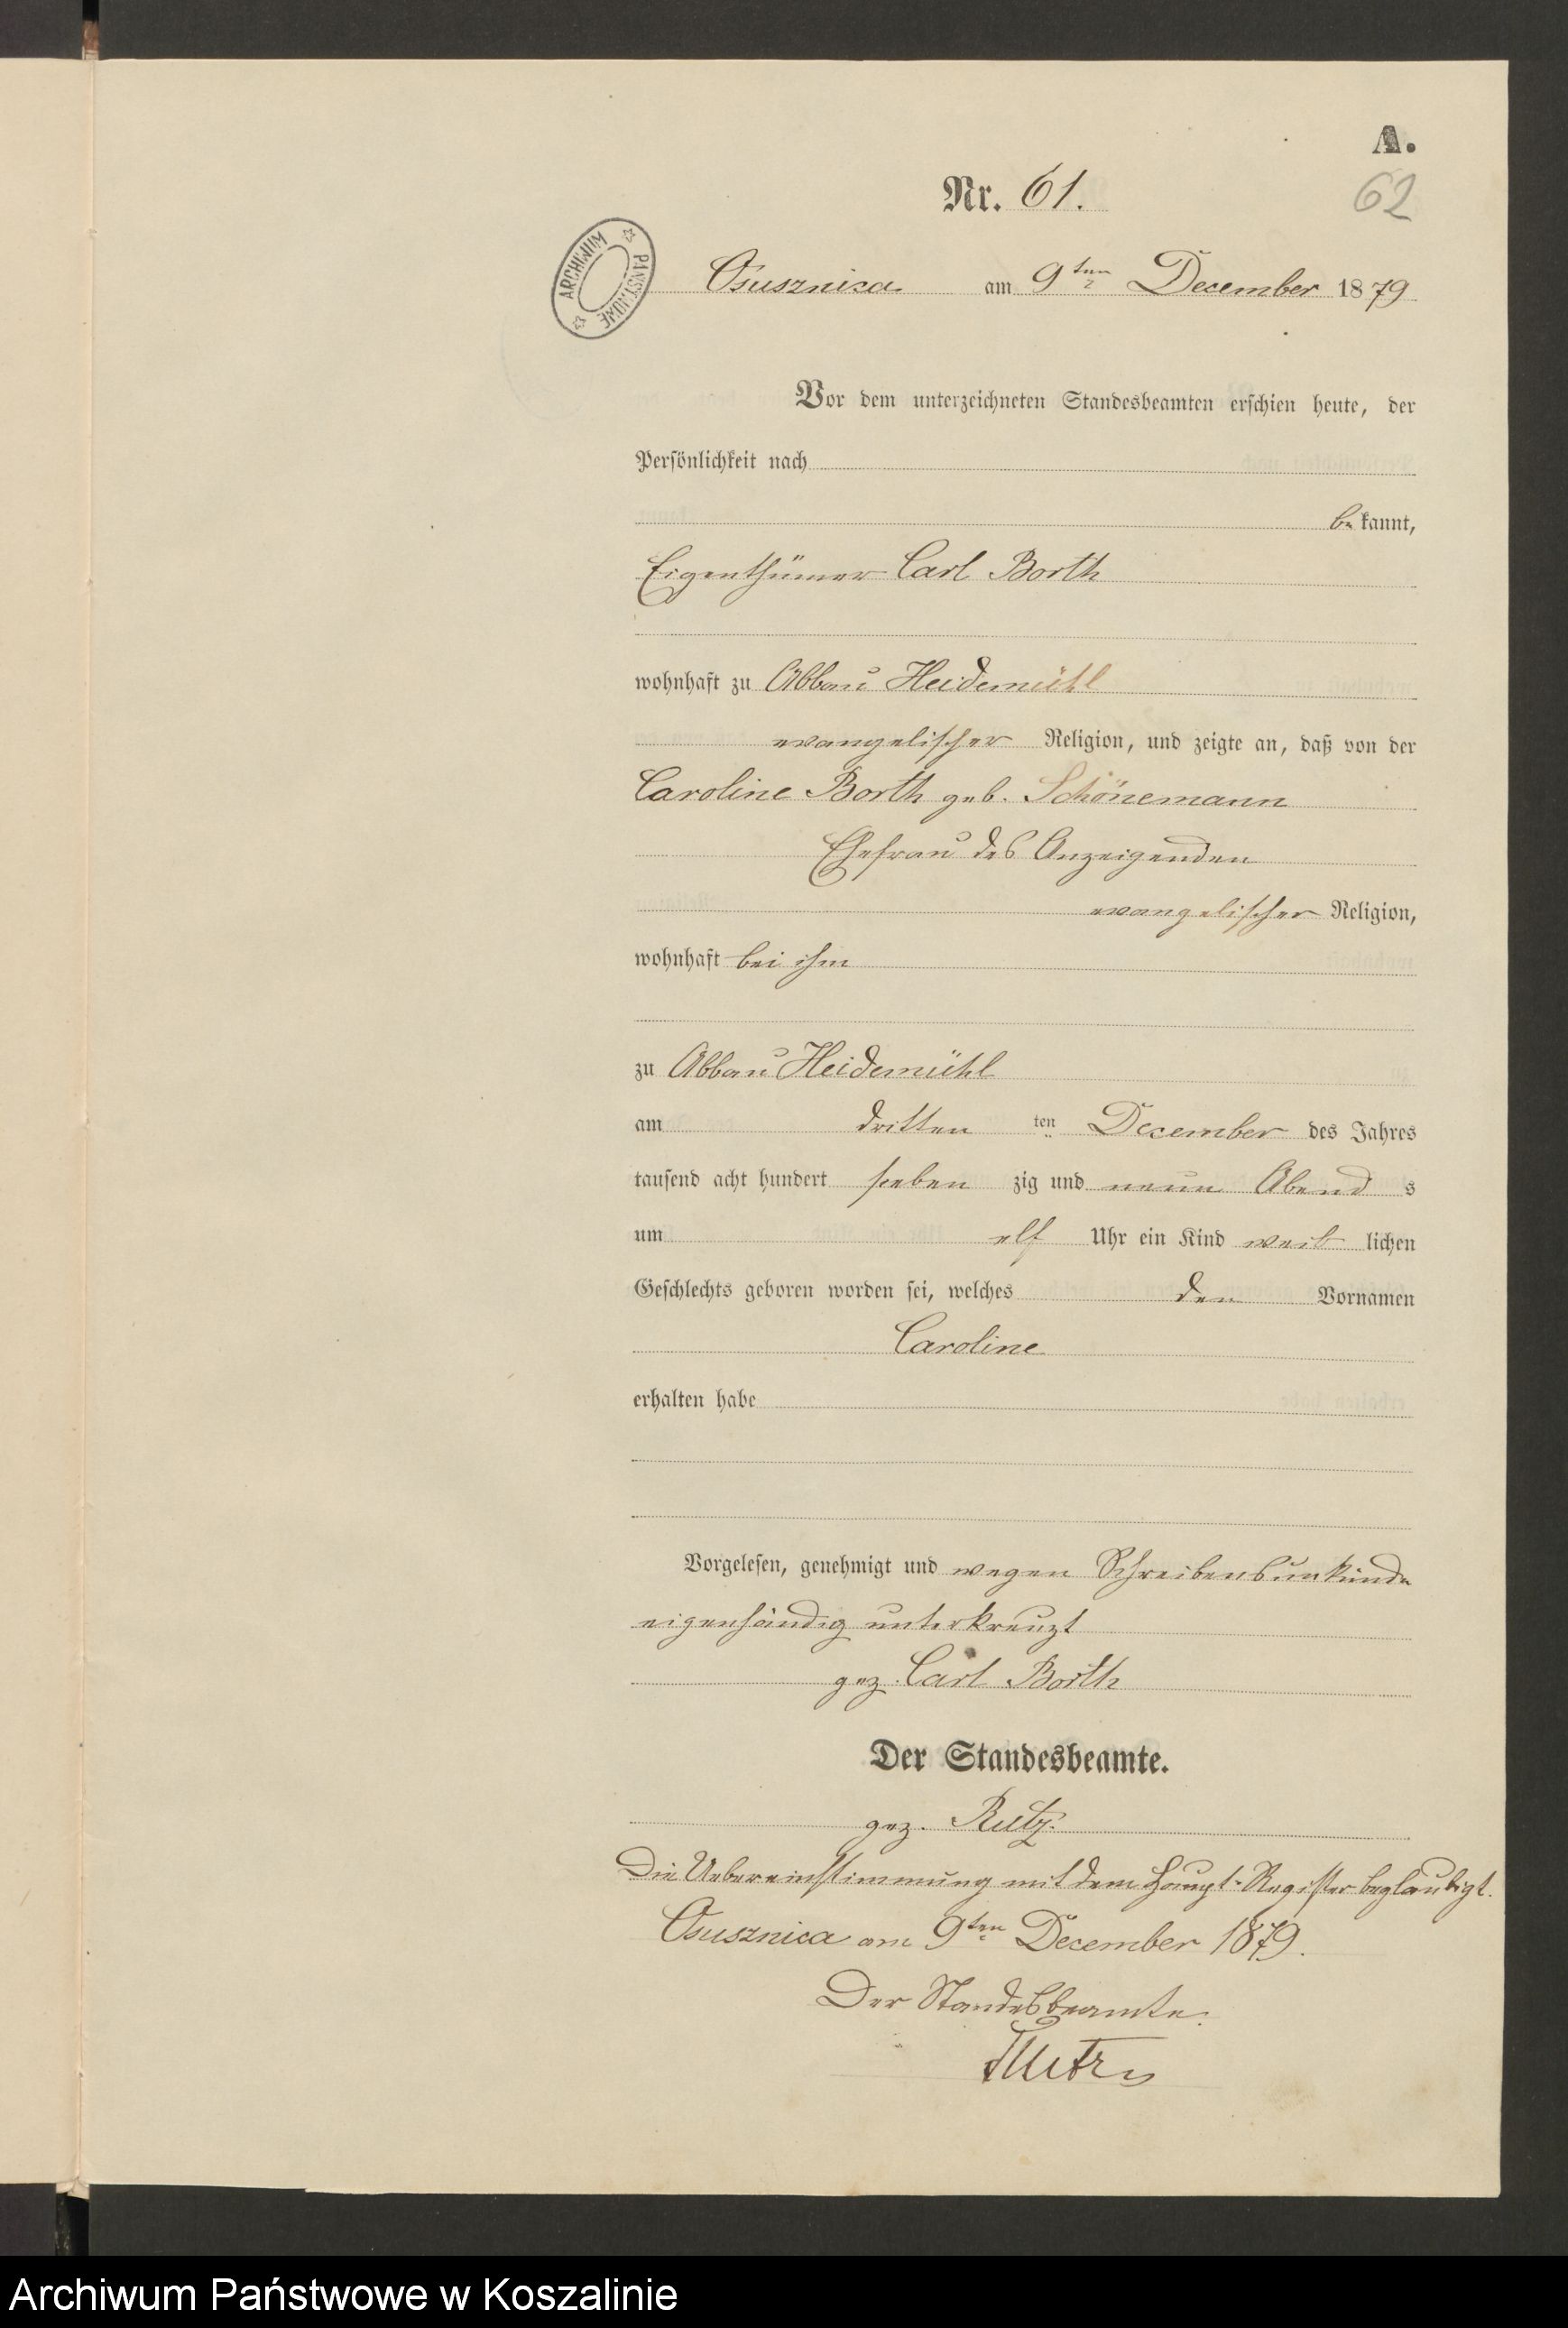 A.
Nr. 61.
62
ARCHIWUM PAŃSTWOWE
Osusznica am 9ten December 1879
Vor dem unterzeichneten Standesbeamten erschien heute, der
Persönlichkeit nach
bekannt,
Eigenthümer Carl Borth
wohnhaft zu Abbau Heidemühl
evangelischer Religion, und zeigte an, daß von der
Caroline Borth geb. Schönemann
Ehefrau des Anzeigenden
evangelischer Religion,
wohnhaft bei ihm
zu Abbau Heidemühl
am dritten ten December des Jahres
tausend acht hundert sieben zig und neun Abend s
um elf Uhr ein Kind weib lichen
Geschlechts geboren worden sei, welches den Vornamen
Caroline
erhalten habe
Vorgelesen, genehmigt und wegen Schreibensunkunde
eigenhändig unterkreuzt
gez. Carl Borth
Der Standesbeamte.
gez.
Die Uebereinstimmung mit dem Haupt-Register beglaubigt.
Osusznica am 9ten December 1879.
Der Standesbeamte.
Archiwum Państwowe w Koszalinie